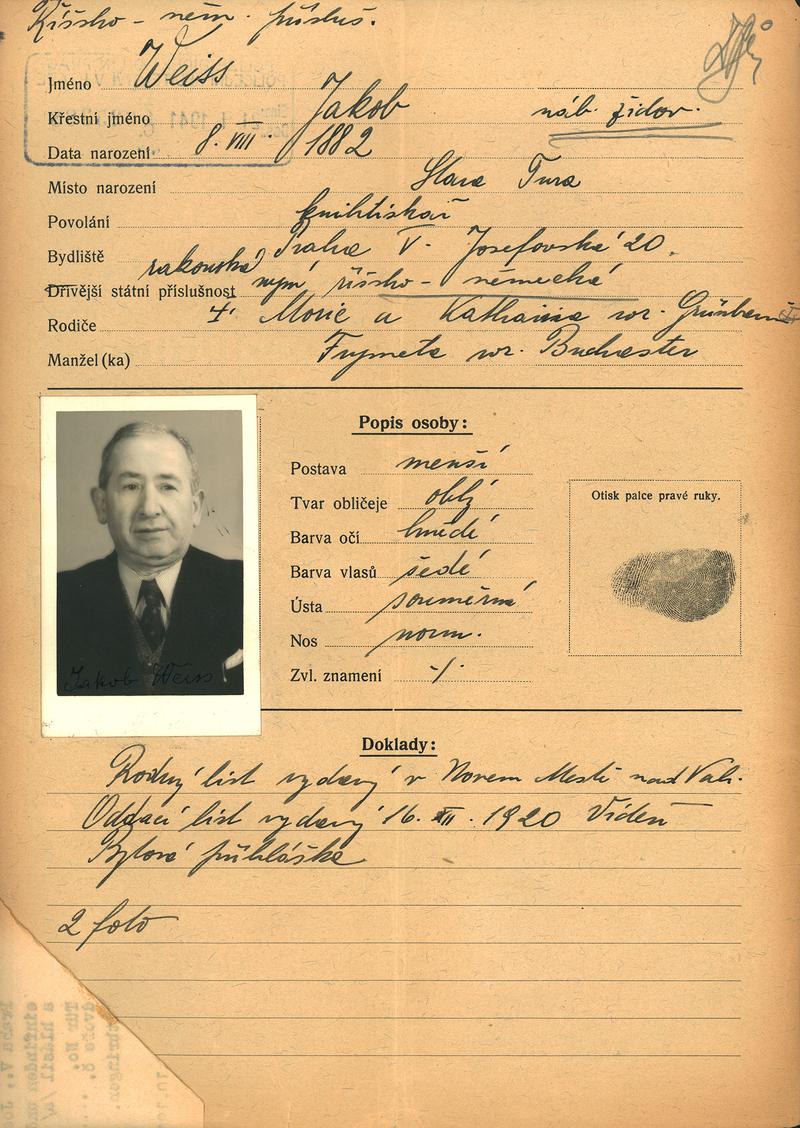 Říšsko - něm. přísluš.
Jméno Weiss
Křestní jméno Jakob náb. židov.
Data narození 8. VIII. 1882
Místo narození Stara Tura
Povolání knihtiskař
Bydliště Praha V. Josefovská 20.
rakouská,
Dřívější státní příslušnost nyní říšsko - německá
Rodiče Moric a Katharina roz.
Manžel (ka) roz.
Popis osoby:
Postava menší
Tvar obličeje oblý
Barva očí hnědé
Barva vlasů šedé
Ústa souměrná
Nos norm.
Zvl. znamení -/.
Otisk palce pravé ruky.
Jakob Weiss
Doklady:
Rodný list vydaný v Novem Mestě nad Váh.
Oddací list vydaný 16. XII. 1920 Vídeň
Bytová přihláška
2 foto